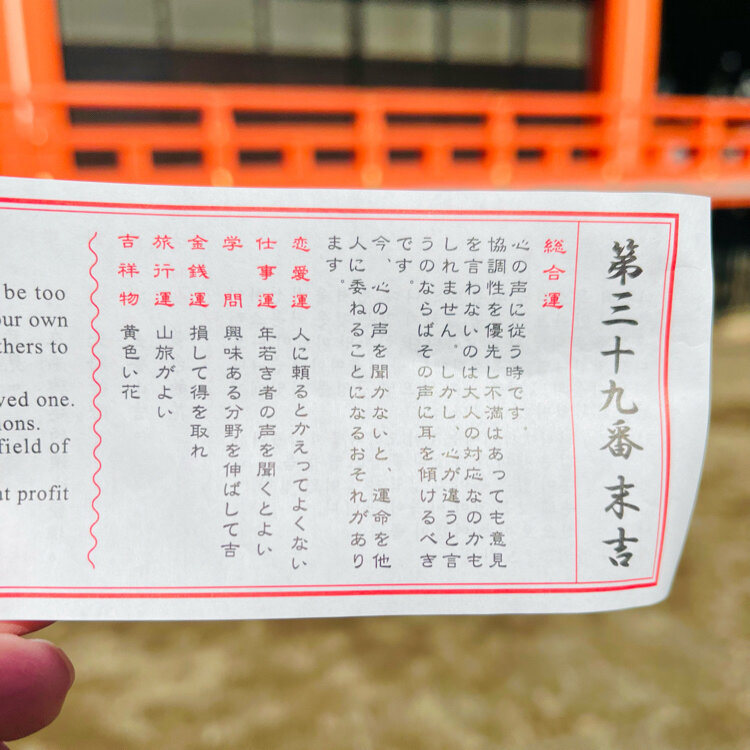 第三十九番 末吉
総合運
心の声に従う時です。
協調性を優先し不満はあっても意見
を言わないのは大人の対応なのかも
しれません。しかし、心が違うと言
うのならばその声に耳を傾けるべき
です。
今、心の声を聞かないと、運命を他
人に委ねることになるおそれがあり
ます。
恋愛運 人に頼るとかえってよくない
仕事運 年若き者の声を聞くとよい
学問 興味ある分野を伸ばして吉
金銭運 損して得を取れ
旅行運 山旅がよい
吉祥物 黄色い花
be too
own
to
one.
field of
profit